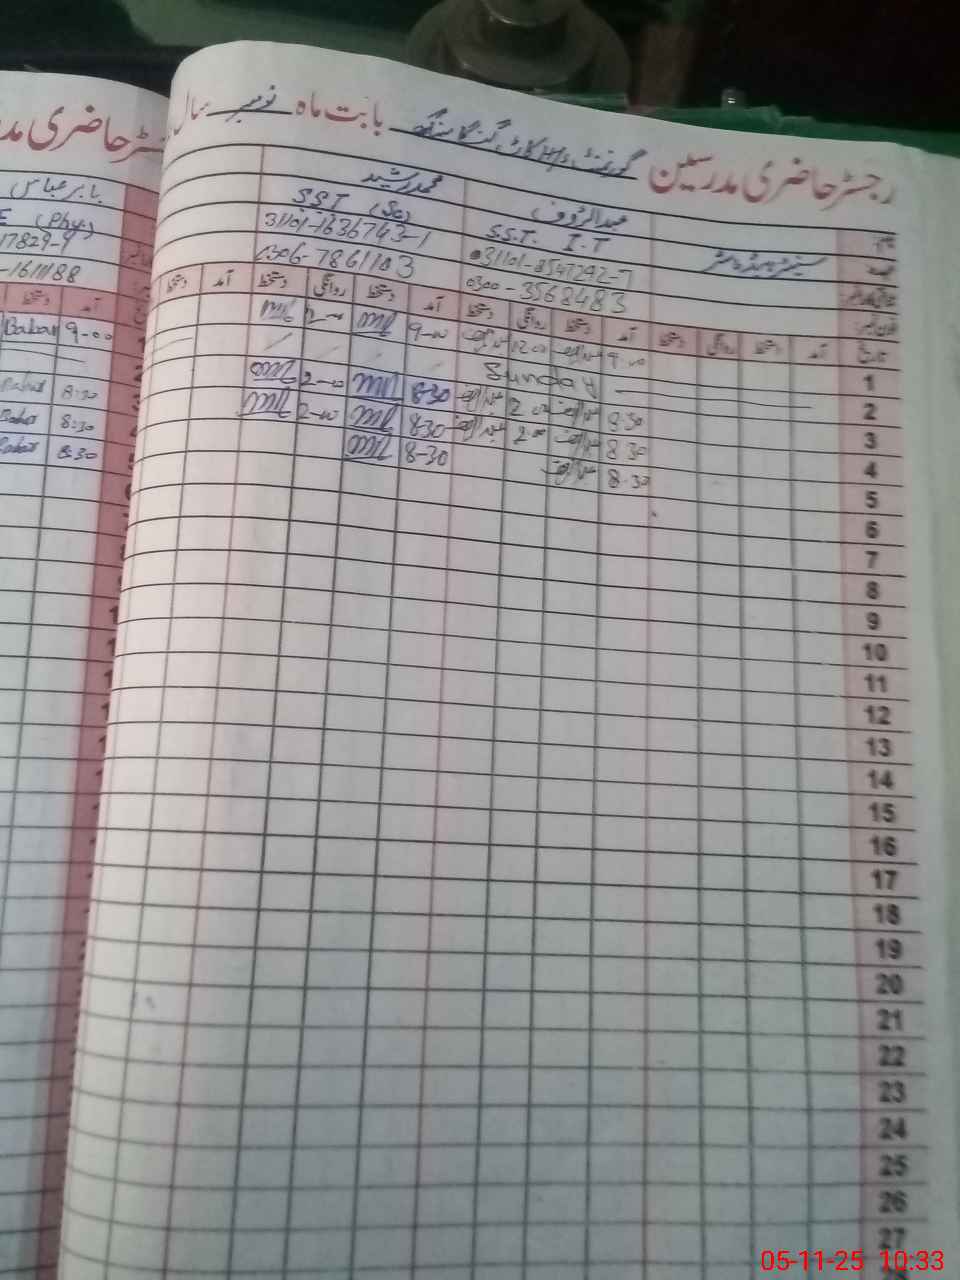 رجسٹر حاضری مدرسین گورنمنٹ بابت ماہ نومبر سال
رجسٹر حاضری مد
نام عبدالرؤف محمد رشید
بابر عباس
عہدہ سینئر ہیڈ ماسٹر S.S.T. I.T SST (Sc)
(Phy)
31101-8547292-7 31101-1636743-1
17829-9
فون نمبر 0300-3568483 0306-7861103
-1611188
تاریخ آمد دستخط روانگی دستخط آمد دستخط روانگی دستخط آمد دستخط روانگی دستخط آمد دستخط
آمد دستخط
1 9-00 عبدالرؤف 12 00 عبدالرؤف 9-00 2-00
Babar 9-00
2 Sunday
3 8-30 عبدالرؤف 2 00 عبدالرؤف 8-30 2-00
Babar 8:30
4 8 30 عبدالرؤف 2 00 عبدالرؤف 8-30 2-00
Babar 8:30
5 8-30 عبدالرؤف 8-30
Babar 8:30
6
7
8
9
10
11
12
13
14
15
16
17
18
19
20
21
22
23
24
25
26
27
05-11-25 10:33